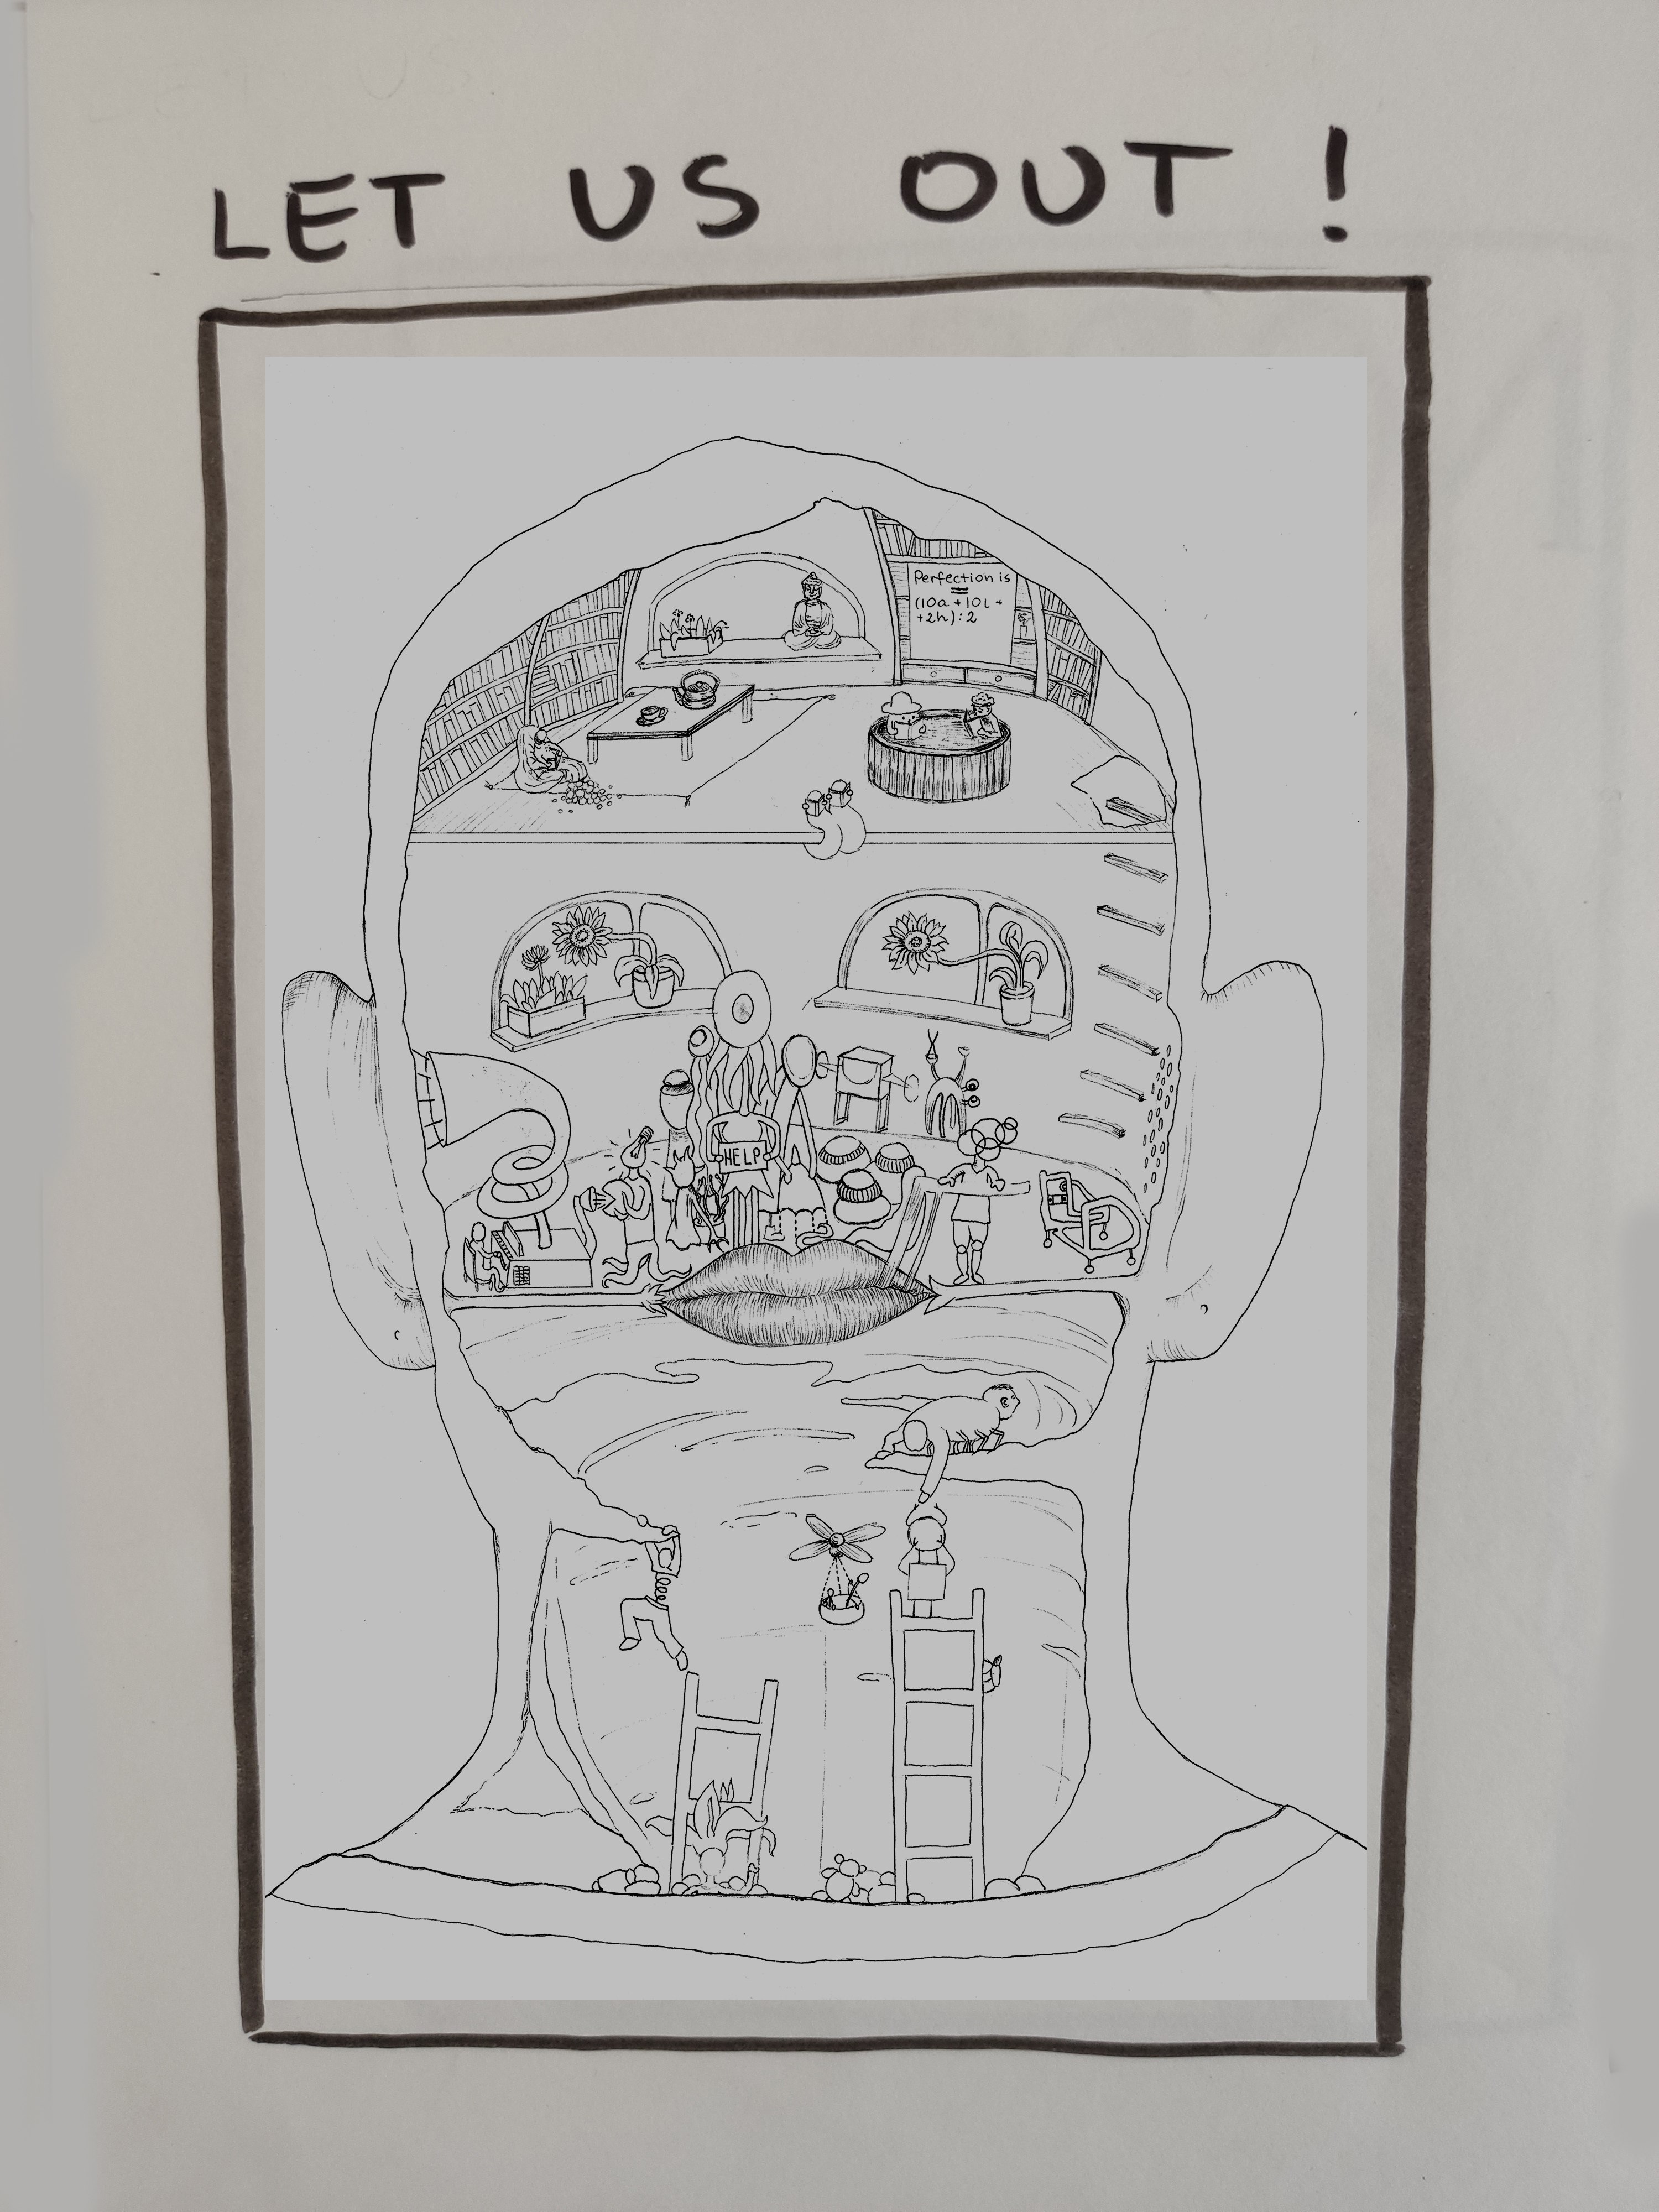 LET US OUT !
Perfection is
(10a + 10l +
+2h) : 2
HELP